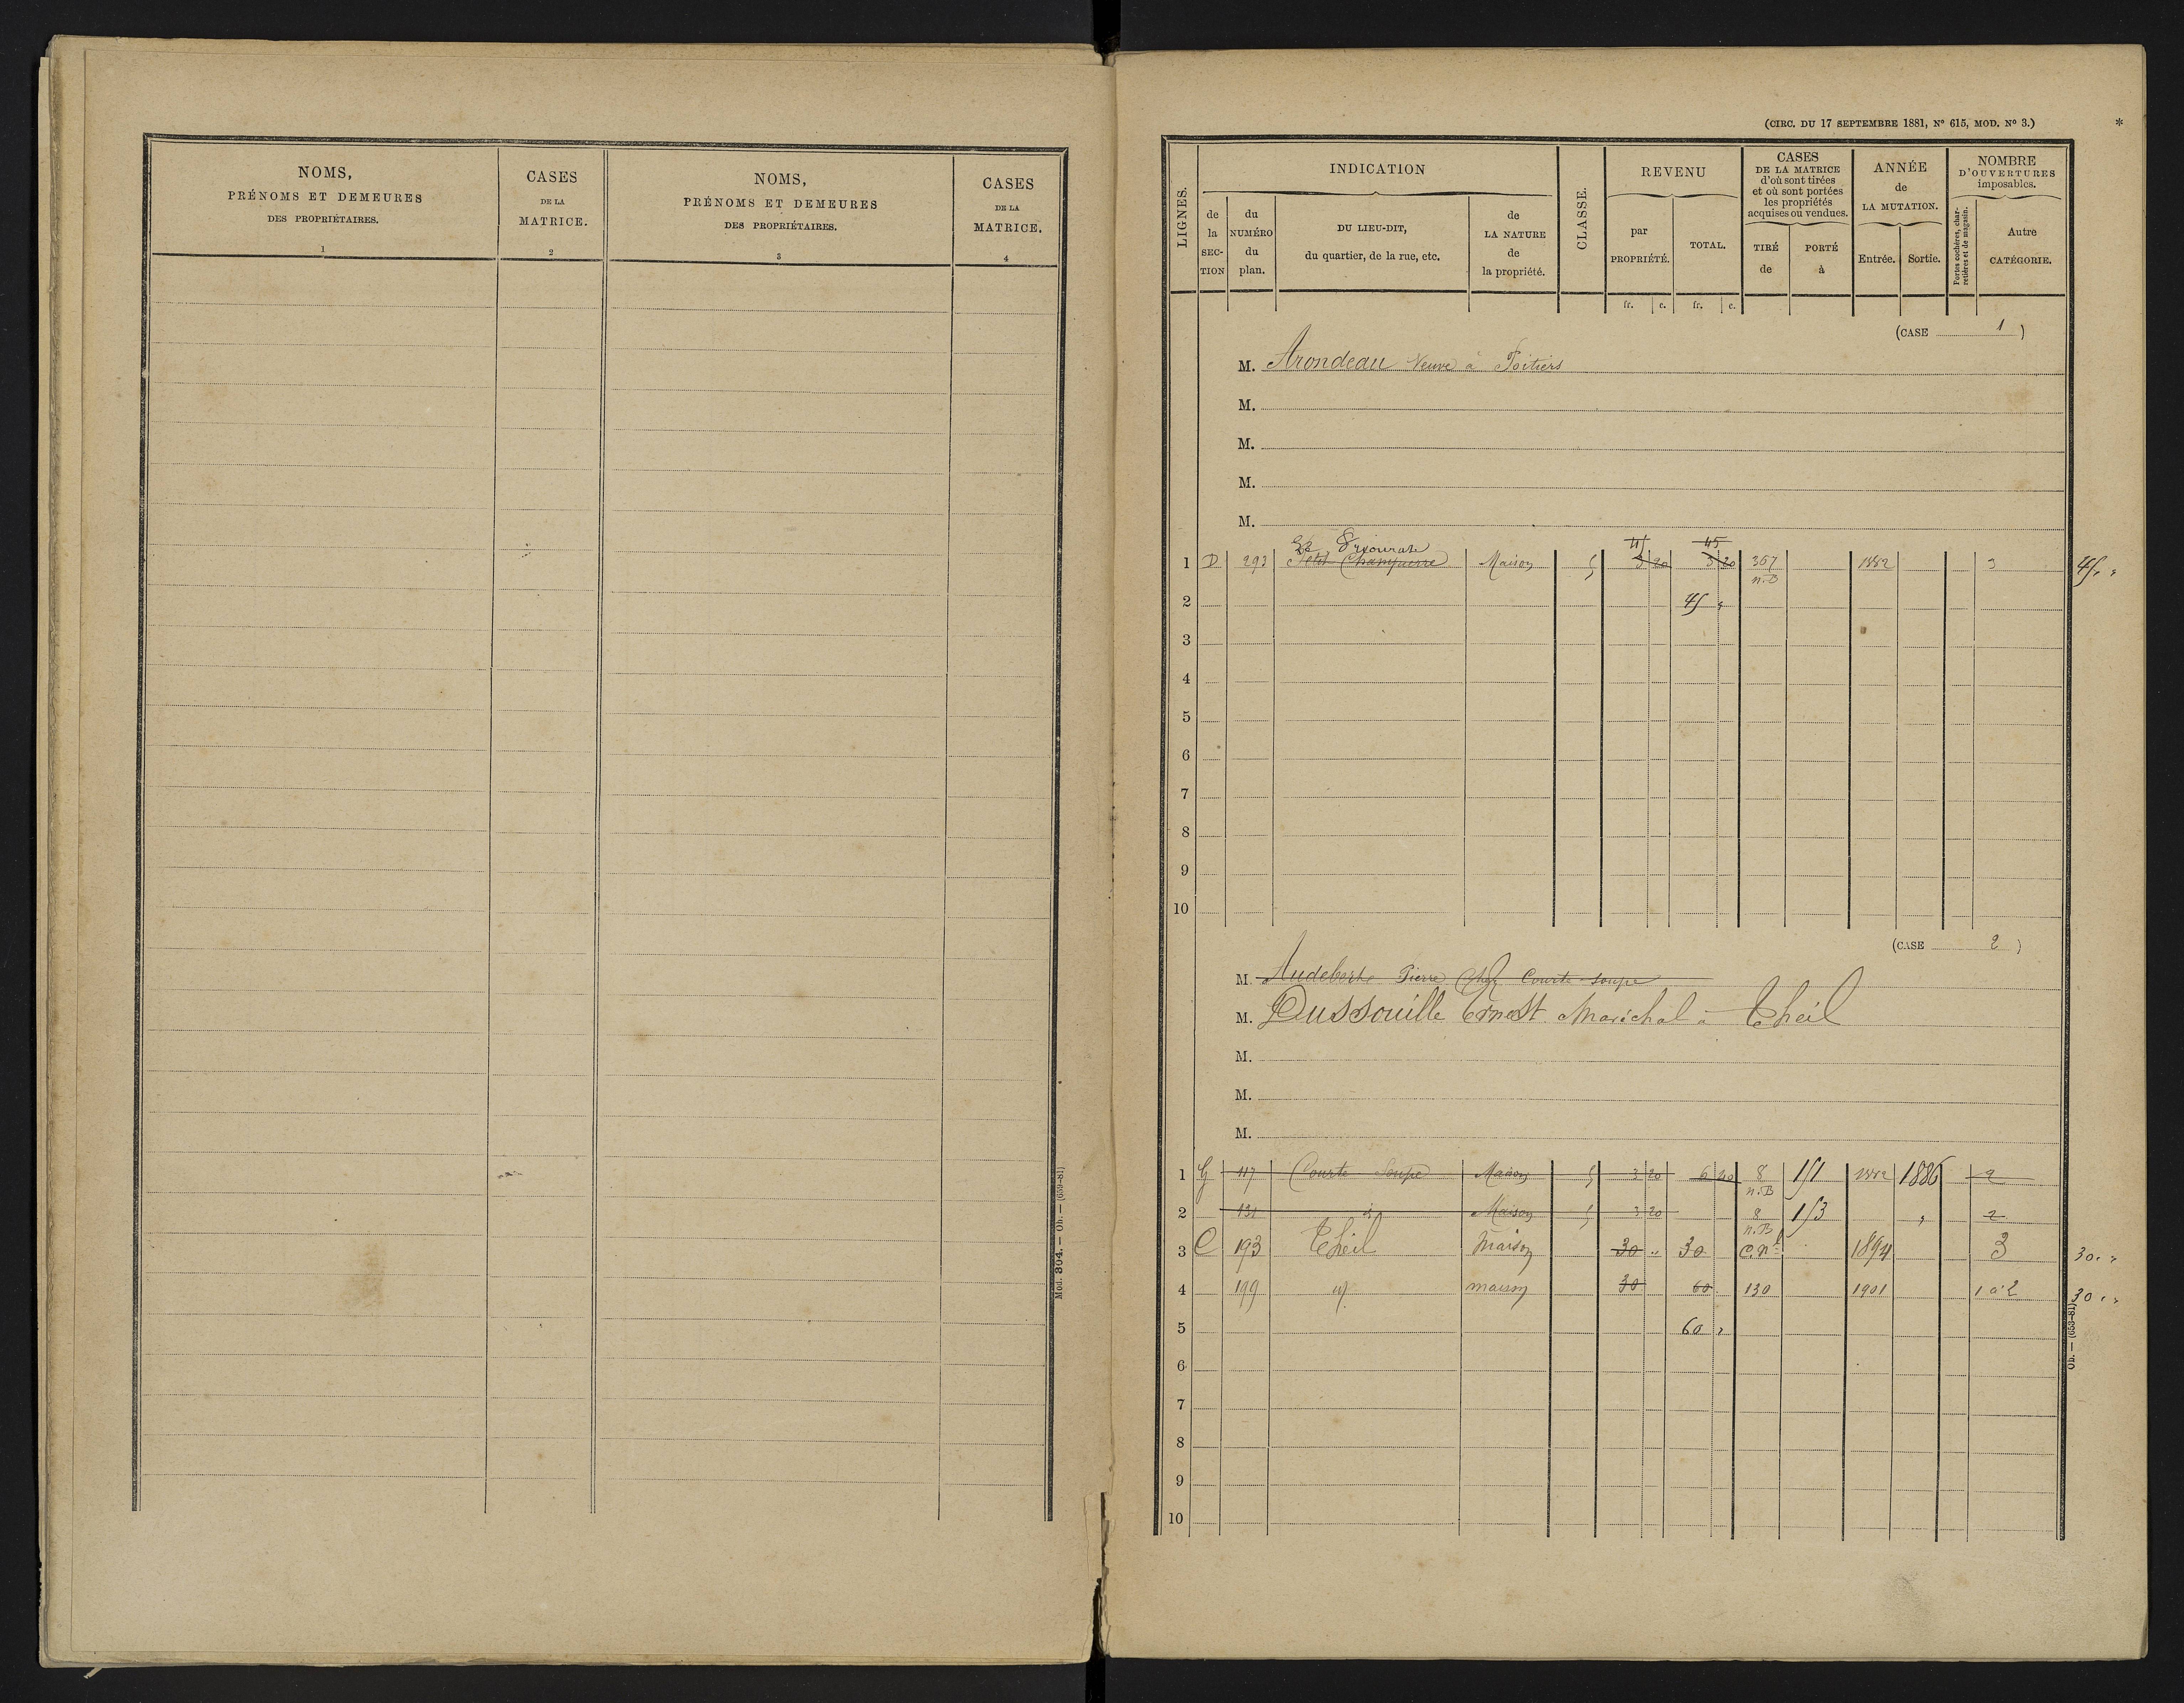 NOMS,
PRÉNOMS ET DEMEURES
DES PROPRIÉTAIRES.
1
CASES
DE LA
MATRICE.
2
NOMS,
PRÉNOMS ET DEMEURES
DES PROPRIÉTAIRES.
3
CASES
DE LA
MATRICE.
4
Mod. 304. — Ob. — (659-81)
(CIRC. DU 17 SEPTEMBRE 1881, Nº 615, MOD. Nº 3.) *
LIGNES.
INDICATION
de la SEC-TION
du NUMÉRO du plan.
DU LIEU-DIT,
du quartier, de la rue, etc.
de LA NATURE de la propriété.
CLASSE.
REVENU
par PROPRIÉTÉ.
TOTAL.
fr. c. fr. c.
CASES
DE LA MATRICE
d'où sont tirées
et où sont portées
les propriétés
acquises ou vendues.
TIRÉ de
PORTÉ à
ANNÉE
de
LA MUTATION.
Entrée. Sortie.
NOMBRE
D'OUVERTURES
imposables.
Portes cochères, charretières et de magasin.
Autre
CATÉGORIE.
(CASE 1 )
M. Arondeau Veuve à Poitiers
M.
M.
M.
M.
45 45
1 D 293 Petit Maison 5 3 20 3 20 367 1882 3 45. "
n.B
2 45 "
3
4
5
6
7
8
9
10
(CASE 2 )
M. Audeberte Pierre Chez Courte-soupe
M. Dussouille Ernest Maréchal à Theil
M.
M.
M.
1 G 117 Courte Soupe Maison 5 3 20 6 40 8 151 1882 1886 2
n.B
2 131 id Maison 5 3 20 8 153 " 2
n.B
3 C 193 Theil Maison 30 " 30 c.nl 1894 3 30. "
4 199 id maison 30 60 130 1901 1 à 2 30. "
5 60 "
6
7
8
9
10
Ob. — (653-81)